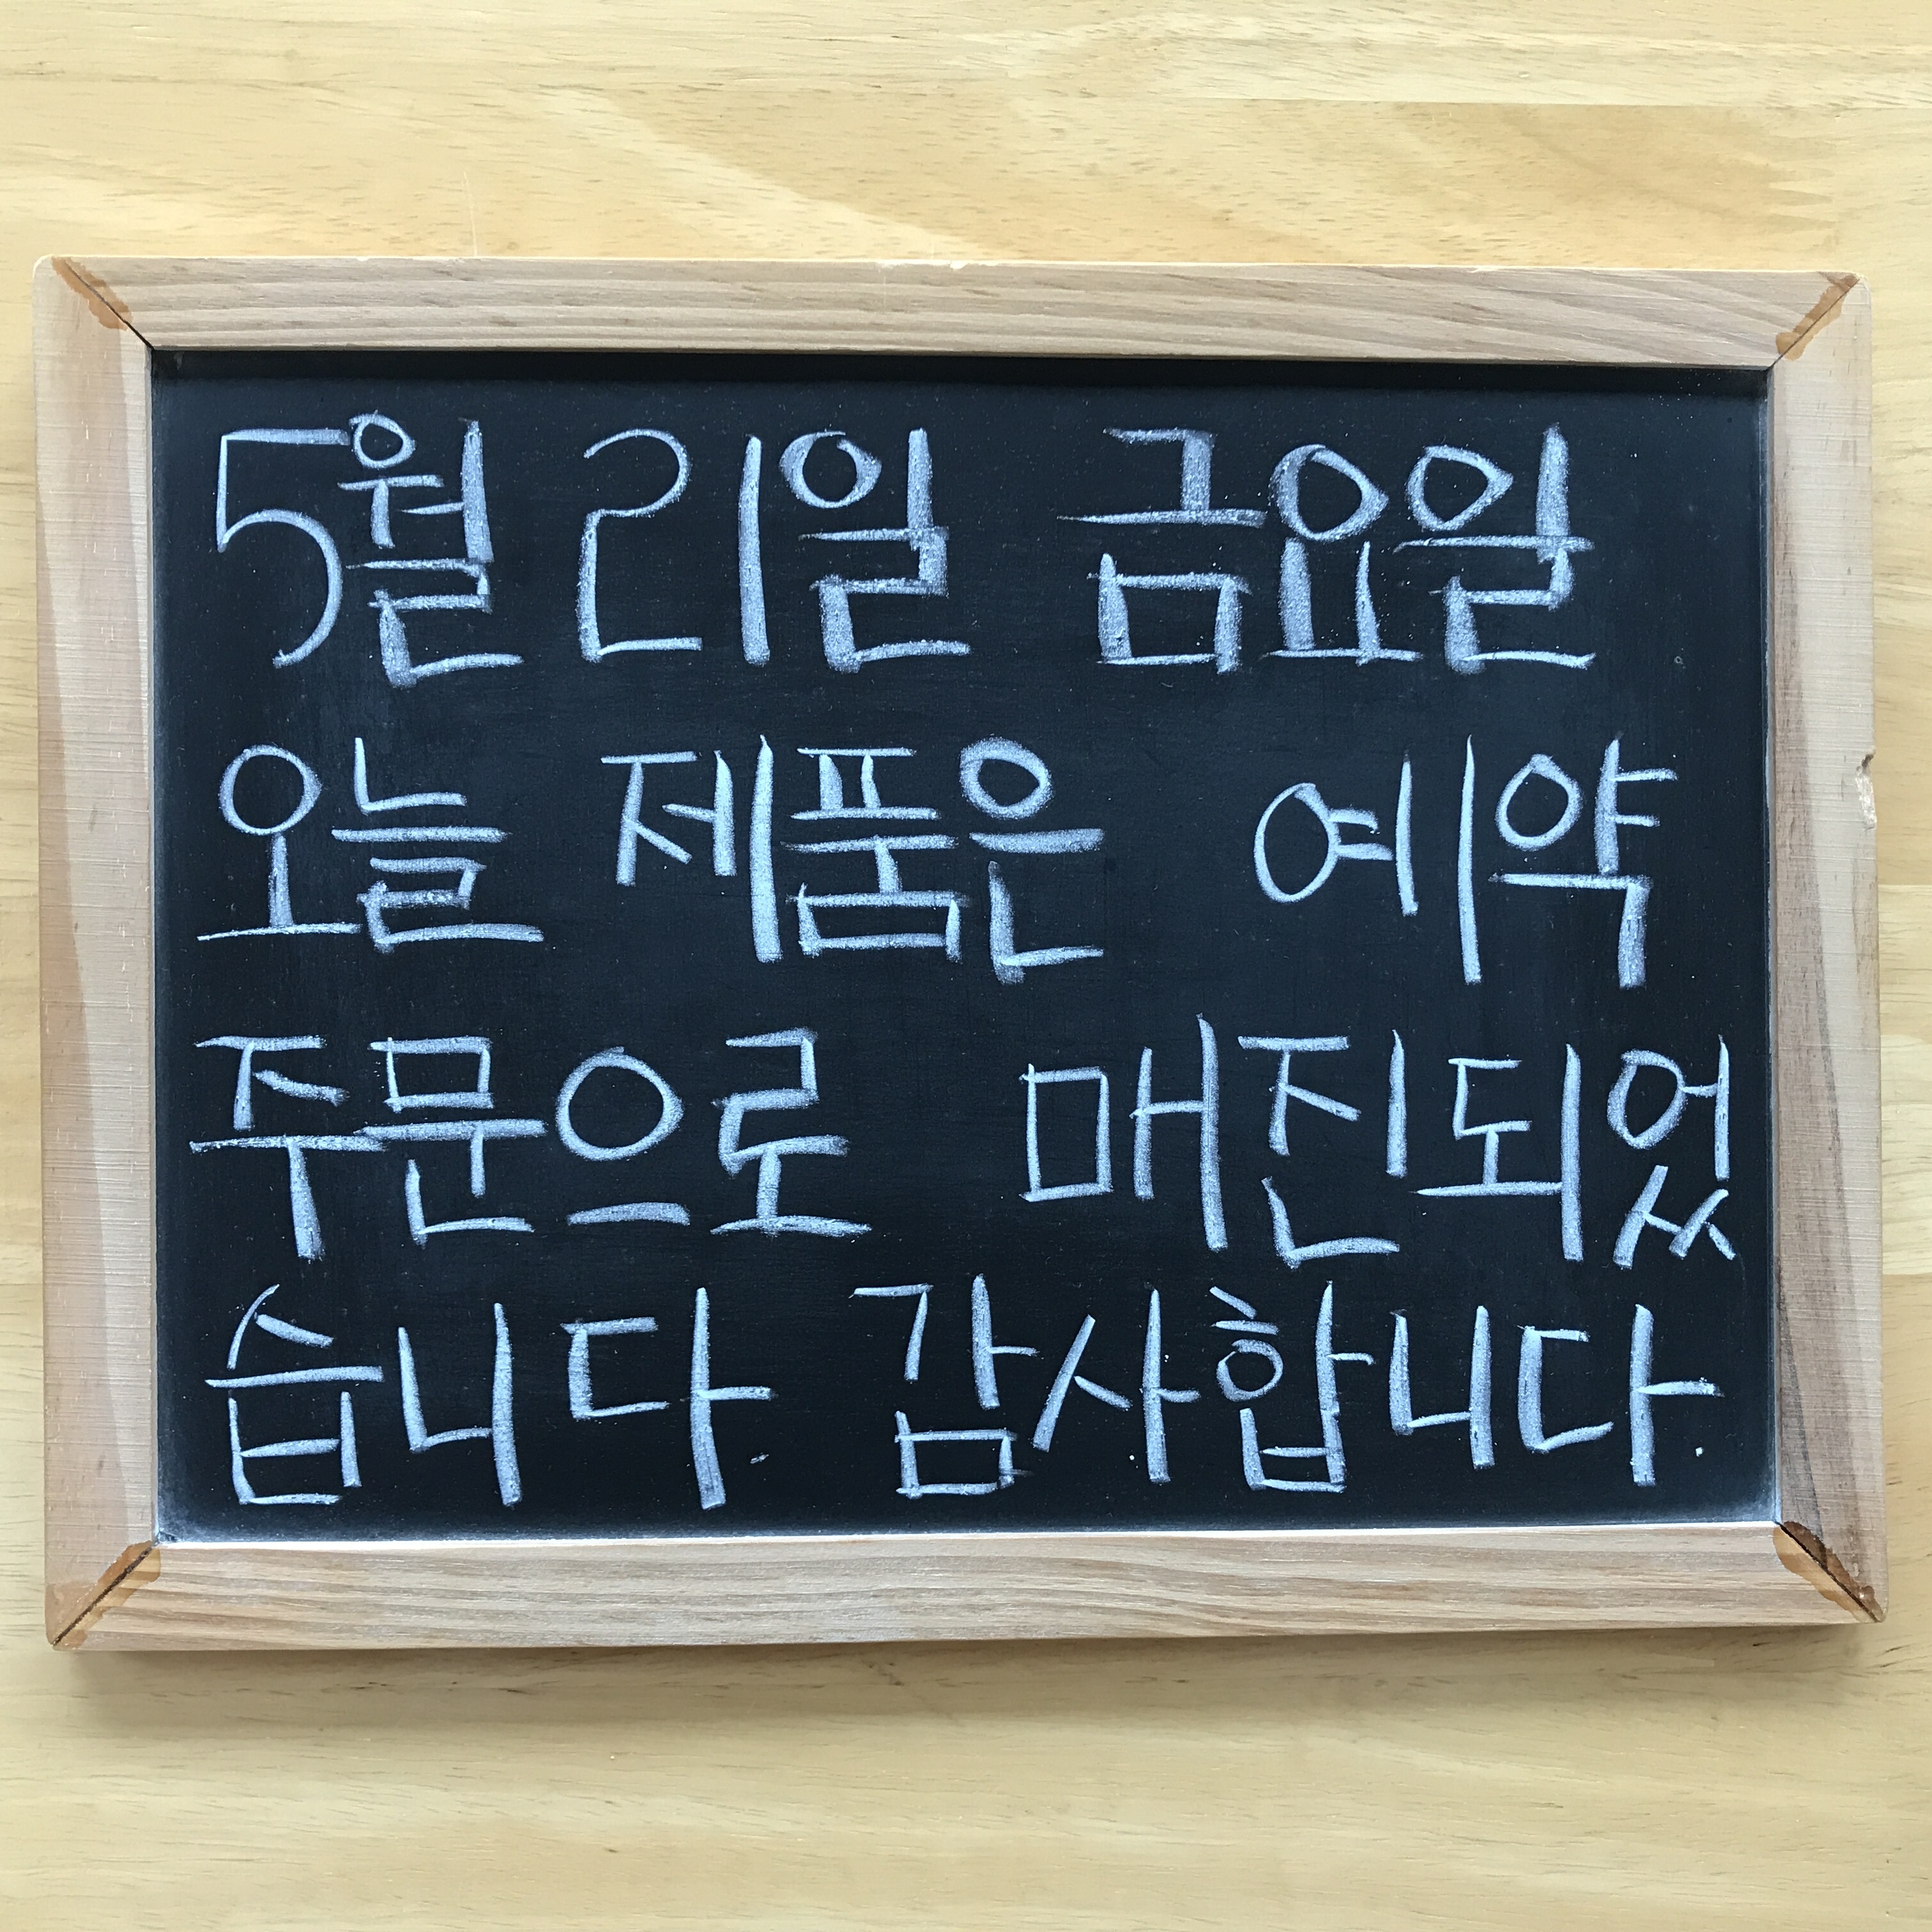 5월 21일 금요일
오늘 제품은 예약
주문으로 매진되었
습니다. 감사합니다.